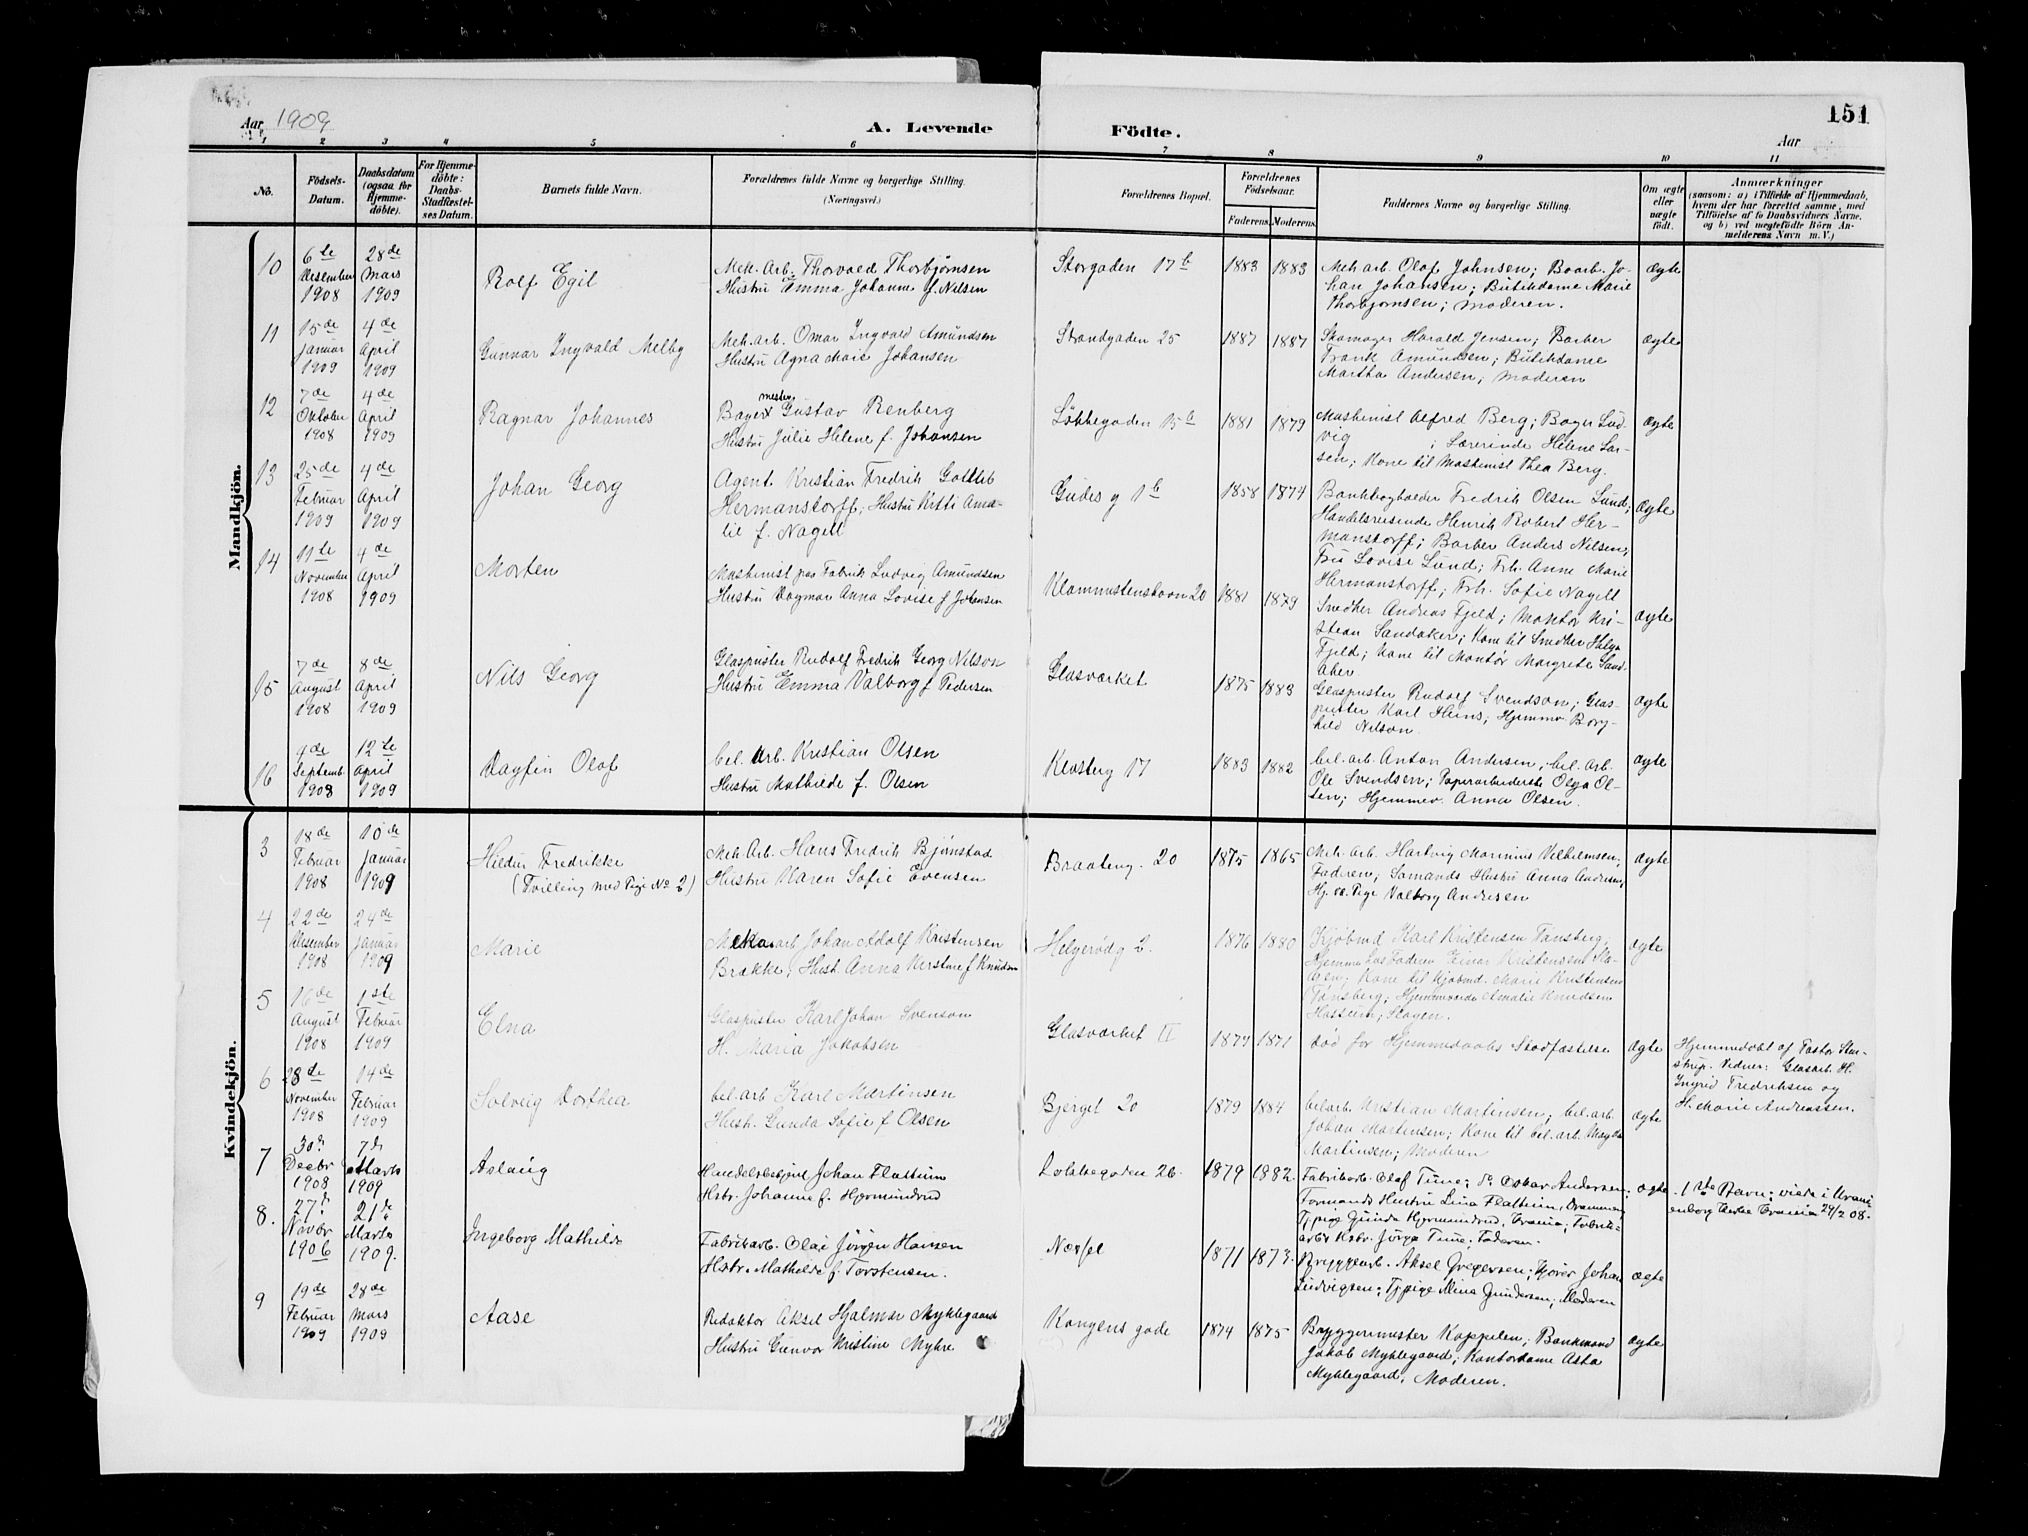 151
Aar 1909
A. Levende Födte.
Aar
1 2 3 4 5 6 7 8 9 10 11
Nô.
Födsels-Datum.
Daabsdatum (ogsaa for Hjemmedöbte).
For Hjemmedöbte: Daabs-Stadfæstelses Datum.
Barnets fulde Navn.
Forældrenes fulde Navne og borgerlige Stilling. (Næringsvei.)
Forældrenes Bopæl.
Forældrenes Födselsaar.
Faderens. Moderens.
Faddernes Navne og borgerlige Stilling.
Om ægte eller uægte födt.
Anmærkninger
(saasom: a) i Tilfælde af Hjemmedaab, hvem der har forrettet samme, med Tilföielse af to Daabsvidners Navne, og b) ved uægtefödte Börn Anmelderens Navn m. V.)
Mandkjön.
10 6te Desember 1908 28de Mars 1909 Rolf Egil
Mek. Arb. Thorvald Thorbjørnsen
Hustru Emma Johanne f. Nilsen
Storgaden 17b 1883 1883
Mek arb. Olaf Johnsen; Boarb. Jo-
han Johansen; Butikdame Marie
Thorbjørnsen; Moderen.
ægte
11 15de Januar 1909 4de April 1909 Gunnar Ingvald Melby
Mek. arb. Omar Ingvald Amundsen
Hustru Agna Marie Johansen
Strandgaden 25 1887 1887
Skomager Harald Jensen; Barber
Frank Amundsen; Butikdame
Martha Andersen; Moderen
ægte
12 7de Oktober 1908 4de April 1909 Ragnar Johannes
Bagermester Gustav Renberg
Hustru Julie Helene f. Johansen
Løkkegaden 15b 1881 1879
Maskinist Alfred Berg; Bager Lud-
vig ; Lærerinde Helene Lar-
sen; Kone til Maskinist Thea Berg.
ægte
13 25de Februar 1909 4de April 1909 Johan Georg
Agent Kristian Fredrik Gottlib
Hermanstorff; Hustru Kitti Ama-
lie f. Nagell
Gudes g 1b 1858 1874
Bankbogholder Fredrik Olsen Lund;
Handelsreisende Henrik Robert Her-
manstorff; Barber Anders Nilsen;
Fru Lovise Lund; Frk. Anne Marie
Hermanstorff; Frk. Sofie Nagell
ægte
14 11te November 1908 4de April 1909 Morten
Maskinist paa Fabrik Ludvig Amundsen
Hustru Dagmar Anna Lovise f Johansen
20 1881 1879
Snedker Andreas Fjeld; Montør Kri-
stian Sandaker; Kone til Snedker Helga
Fjeld; Kone til Montør Margrete Sand-
aker
ægte
15 7de August 1908 8de April 1909 Nils Georg
Glaspuster Rudolf Fredrik Georg Nilson
Hustru Emma Valborg f Pedersen
Glasværket 1875 1883
Glaspuster Rudolf Svendson; Glas-
puster Karl Huns; Hjemmev. Borg-
hild Nilson
ægte
16 9de Septemb. 1908 12te April 1909 Dagfin Olaf
bel. Arb. Kristian Olsen
Hustru Mathilde f. Olsen
Kløsberg 17 1883 1882
bel. arb. Anton Andersen; bel. arb.
Ole Svendsen; Papirarbeiderske Olga Ol-
sen; Hjemmev. Anna Olsen.
ægte
Kvindekjön.
3 18de Februar 1908 10de Januar 1909 Hildur Fredrikke
(Tvilling med Pige No 2)
Mek. Arb. Hans Fredrik Bjønstad
Hustru Karen Sofie Evensen
Braateng. 20 1875 1865
Mek. Arb. Hartvig Marinius Vilhelmsen;
Faderen; Sømands Hustru Anna Andresen;
Hj. v. Pige Valborg Andresen
ægte
4 22de Desember 1908 24de Januar 1909 Marie
Mek. arb Johan Adolf Kristensen
Brække; Hust. Anna Kerstine f Knudsen
Helgerødg 2. 1876 1880
Kjøbmd Karl Kristensen Tønsberg;
Hjemme hos Fader Einar Kristensen Sto-
gen; Kone til Kjøbmd. Marie Kristensen
Tønsberg; Hjemmeværde Amalie Knudsen
Hasseum; Stogen.
ægte
5 16de August 1908 1ste Februar 1909 Elna
Glaspuster Karl Johan Svenson
H. Maria Jakobsen
Glasværket II 1879 1871
død før Hjemmedaabs Stadfæstelse
ægte
Hjemmedøbt af Pastor Sten-
strup. Vidner: Glasarb. H.
Ingrid Fredriksen og
H. Marie Andreassen.
6 28de November 1908 14de Februar 1909 Solveig Dorthea
bel. arb Karl Martinsen
Hust. Gunda Sofie f Olsen
Bjerget 20 1879 1884
bel arb. Kristian Martinsen; bel. arb.
Johan Martensen; Kone til bel. arb. Magda
Martinsen; Moderen
ægte
7 30te Decbr 1908 7de Marts 1909 Aslaug
Handelsbetjent Johan Flattum
Hstr. Johanne f. Hjermundrud
Løkkegaden 26. 1879 1882.
Fabrikarb. Olaf Tune; do Oskar Andersen;
Formands Hustru Lina Flattum, Drammen;
Tjpige Gunda Hjermundrud, Frania; Fabrik-
arb's Hstr. Jørga Tune; Faderen.
ægte
1ste Barn; viede i Uranienborg Kirke 29/2 08.
8. 27de Novbr 1906 21de Marts 1909. Ingeborg Mathilde
Fabrikarb. Olai Jørgen Hansen
Hstr. Mathilde f. Torstensen.
Næfsel 1871 1873.
Bryggearb. Aksel Gregersen; Kjører Johan
Ludvigsen; Tjpige Mina Gundersen; Moderen
ægte
9 19de Februar 1909 28de Mars 1909 Aase
Redaktør Aksel Hjalmar Myklegaard
Hustru Gunvor Kristine Myhre
Kongens gade 1874 1875
Bryggermester Koppelen; Bankmand
Jakob Myklegaard; Kontordame Asta
Myklegaard, Moderen.
ægte